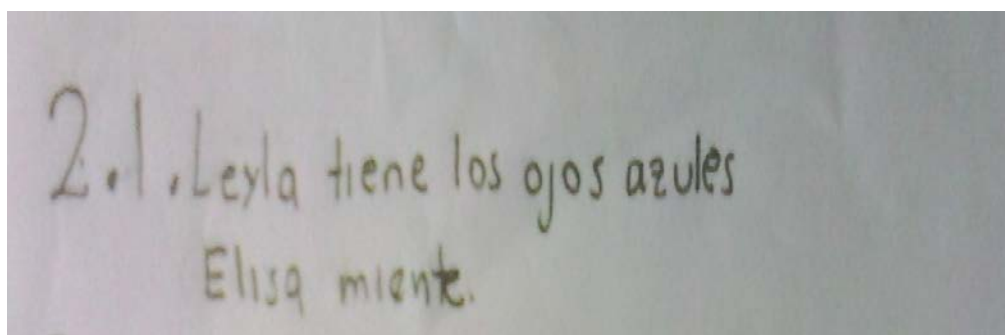 2.1. Leyla tiene los ojos azules
Elisa miente.